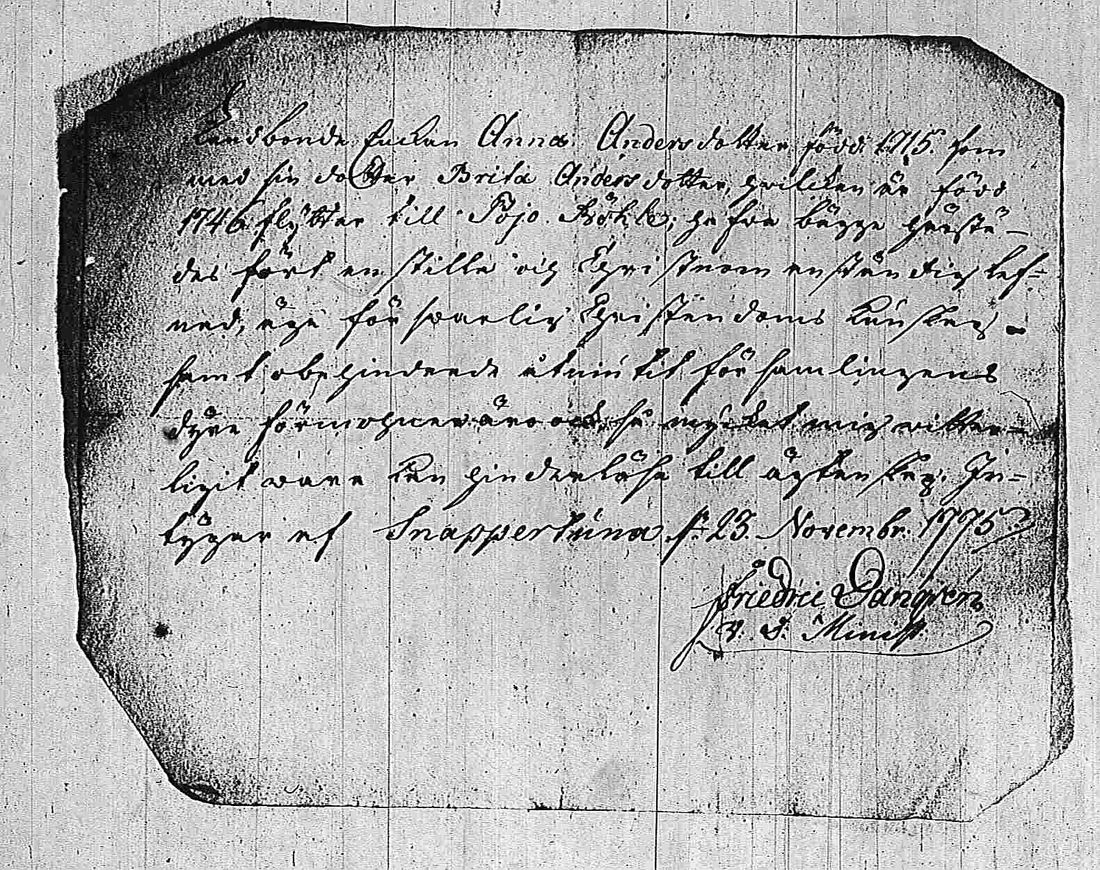 Landbonde Enckan Anna Andersdotter född 1715. som
med sin dotter Brita Andersdotter, hvilcken är född
1746 flytter till Pojo ; hafva bägge härstä-
des fört en stilla och Christeom anständig lef-
nad, äga försvarlig Christendoms kunskap -
samt obehindrade åtniutit församlingens
dyra förmohner äro ock, så mycket mig vitter-
ligit vara kan hinderlösa till ägtenskap. In-
tygar af Snappertuna d. 23. Novembr. 1775.
Friedric Dangren
V. D. Minist.